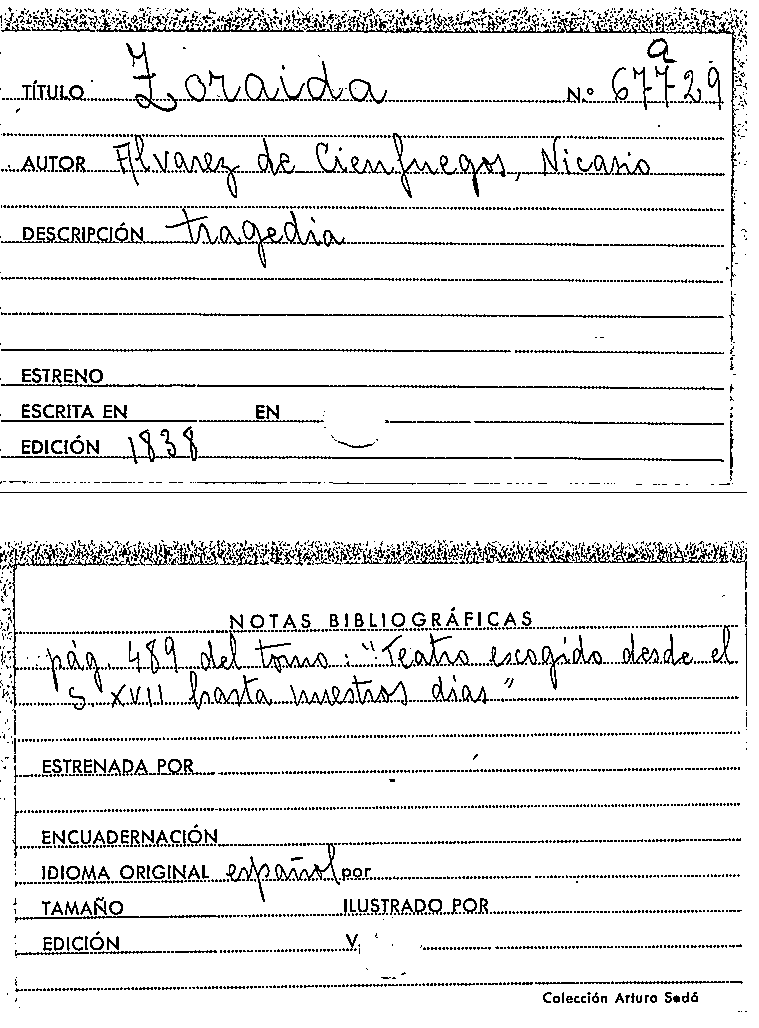 TÍTULO Zoraida N.º 67729 a
AUTOR Alvarez de Cienfuegos, Nicasio
DESCRIPCIÓN tragedia
ESTRENO
ESCRITA EN EN
EDICIÓN 1838
NOTAS BIBLIOGRÁFICAS
pág. 489 del tomo: "Teatro escogido desde el
s. XVII hasta nuestros dias"
ESTRENADA POR
ENCUADERNACIÓN
IDIOMA ORIGINAL español por
TAMAÑO ILUSTRADO POR
EDICIÓN V.
Colección Arturo Sedó